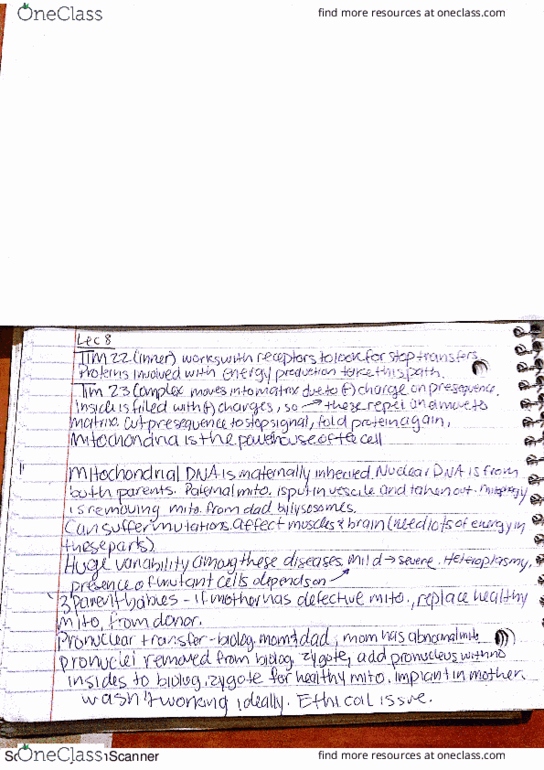 OneClass
find more resources at oneclass.com
Lec 8
TIM 22 (inner) works with receptors to look for stop transfers.
Proteins involved with energy production take this path.
Tim 23 Complex moves into matrix due to (+) charge on presequence.
Inside is filled with charges, so → these repel and move to
matrix. Cut presequence to stop signal, fold protein again.
Mitochondria is the powerhouse of the cell
Mitochondrial DNA is maternally inherited. Nuclear DNA is from
both parents. Paternal mito. is put in vescile and taken out. Mitophagy
is removing mito. from dad by lysosomes.
Can suffer mutations. affect muscles & brain (need lots of energy in
these parts)
Huge variability among these diseases. Mild → severe. Heteroplasmy,
presence of mutant cells depends on
3 Parent babies - if mother has defective mito., replace healthy
mito. from donor.
Pronuclear transfer - biolog. mom & dad, mom has abnormal mito.
pronuclei removed from biolog. zygote, add pronucleus with no
insides to biolog. zygote for healthy mito. Implant in mother.
wasn't working ideally. Ethical issue.
OneClass
Scanner
find more resources at oneclass.com